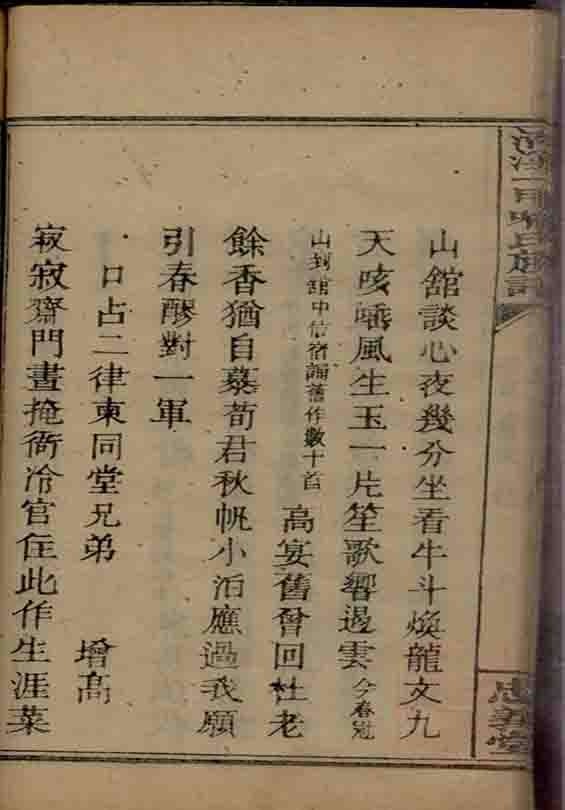 山舘談心夜幾分坐看牛斗煥龍文九
天咳唾風生玉一片笙歌響遏雲今春冠
山到舘中信宿誦舊作數十首高宴舊曾回杜老
餘香猶自慕荀君秋帆小泊應過我願
引春醪對一軍
口占二律柬同堂兄弟 增高
寂寂齋門晝掩衙冷官住此作生涯菜
忠義堂